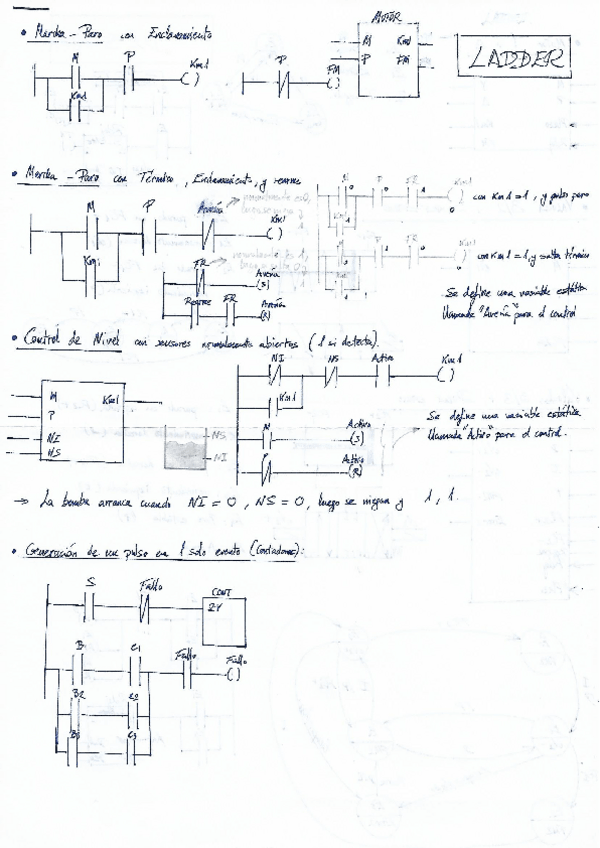 • Marcha - Paro con Enclavamiento
MOTOR
LADDER
M P Km1
Km1
P FM
M Km1
P FM
• Marcha - Paro con Térmico, Enclavamiento, y rearme
M P Avería Km1
Km1
FR Avería
(S)
Rearme FR Avería
(R)
E P FR Km1
0 0 1 0
Km1
1
con Km1 = 1, y pulso paro
E P FR Km1
0 1 0 0
Km1
1
con Km1 = 1, y salta térmico
Se define una variable estática
llamada "Avería" para el control
• Control de Nivel con sensores normalmente abiertos (1 si detecta).
M Km1
P
NI
NS
NS
NI
NI NS Activo Km1
Km1
M Activo
(S)
Activo
(R)
Se define una variable estática
llamada "Activo" para el control.
→ La bomba arranca cuando NI = 0, NS = 0, luego se niegan y 1, 1.
• Generación de un pulso en 1 solo evento (Contadores):
S Fallo CONT
ZV
B C1 Fallo Fallo
B2 C2
B3 C3